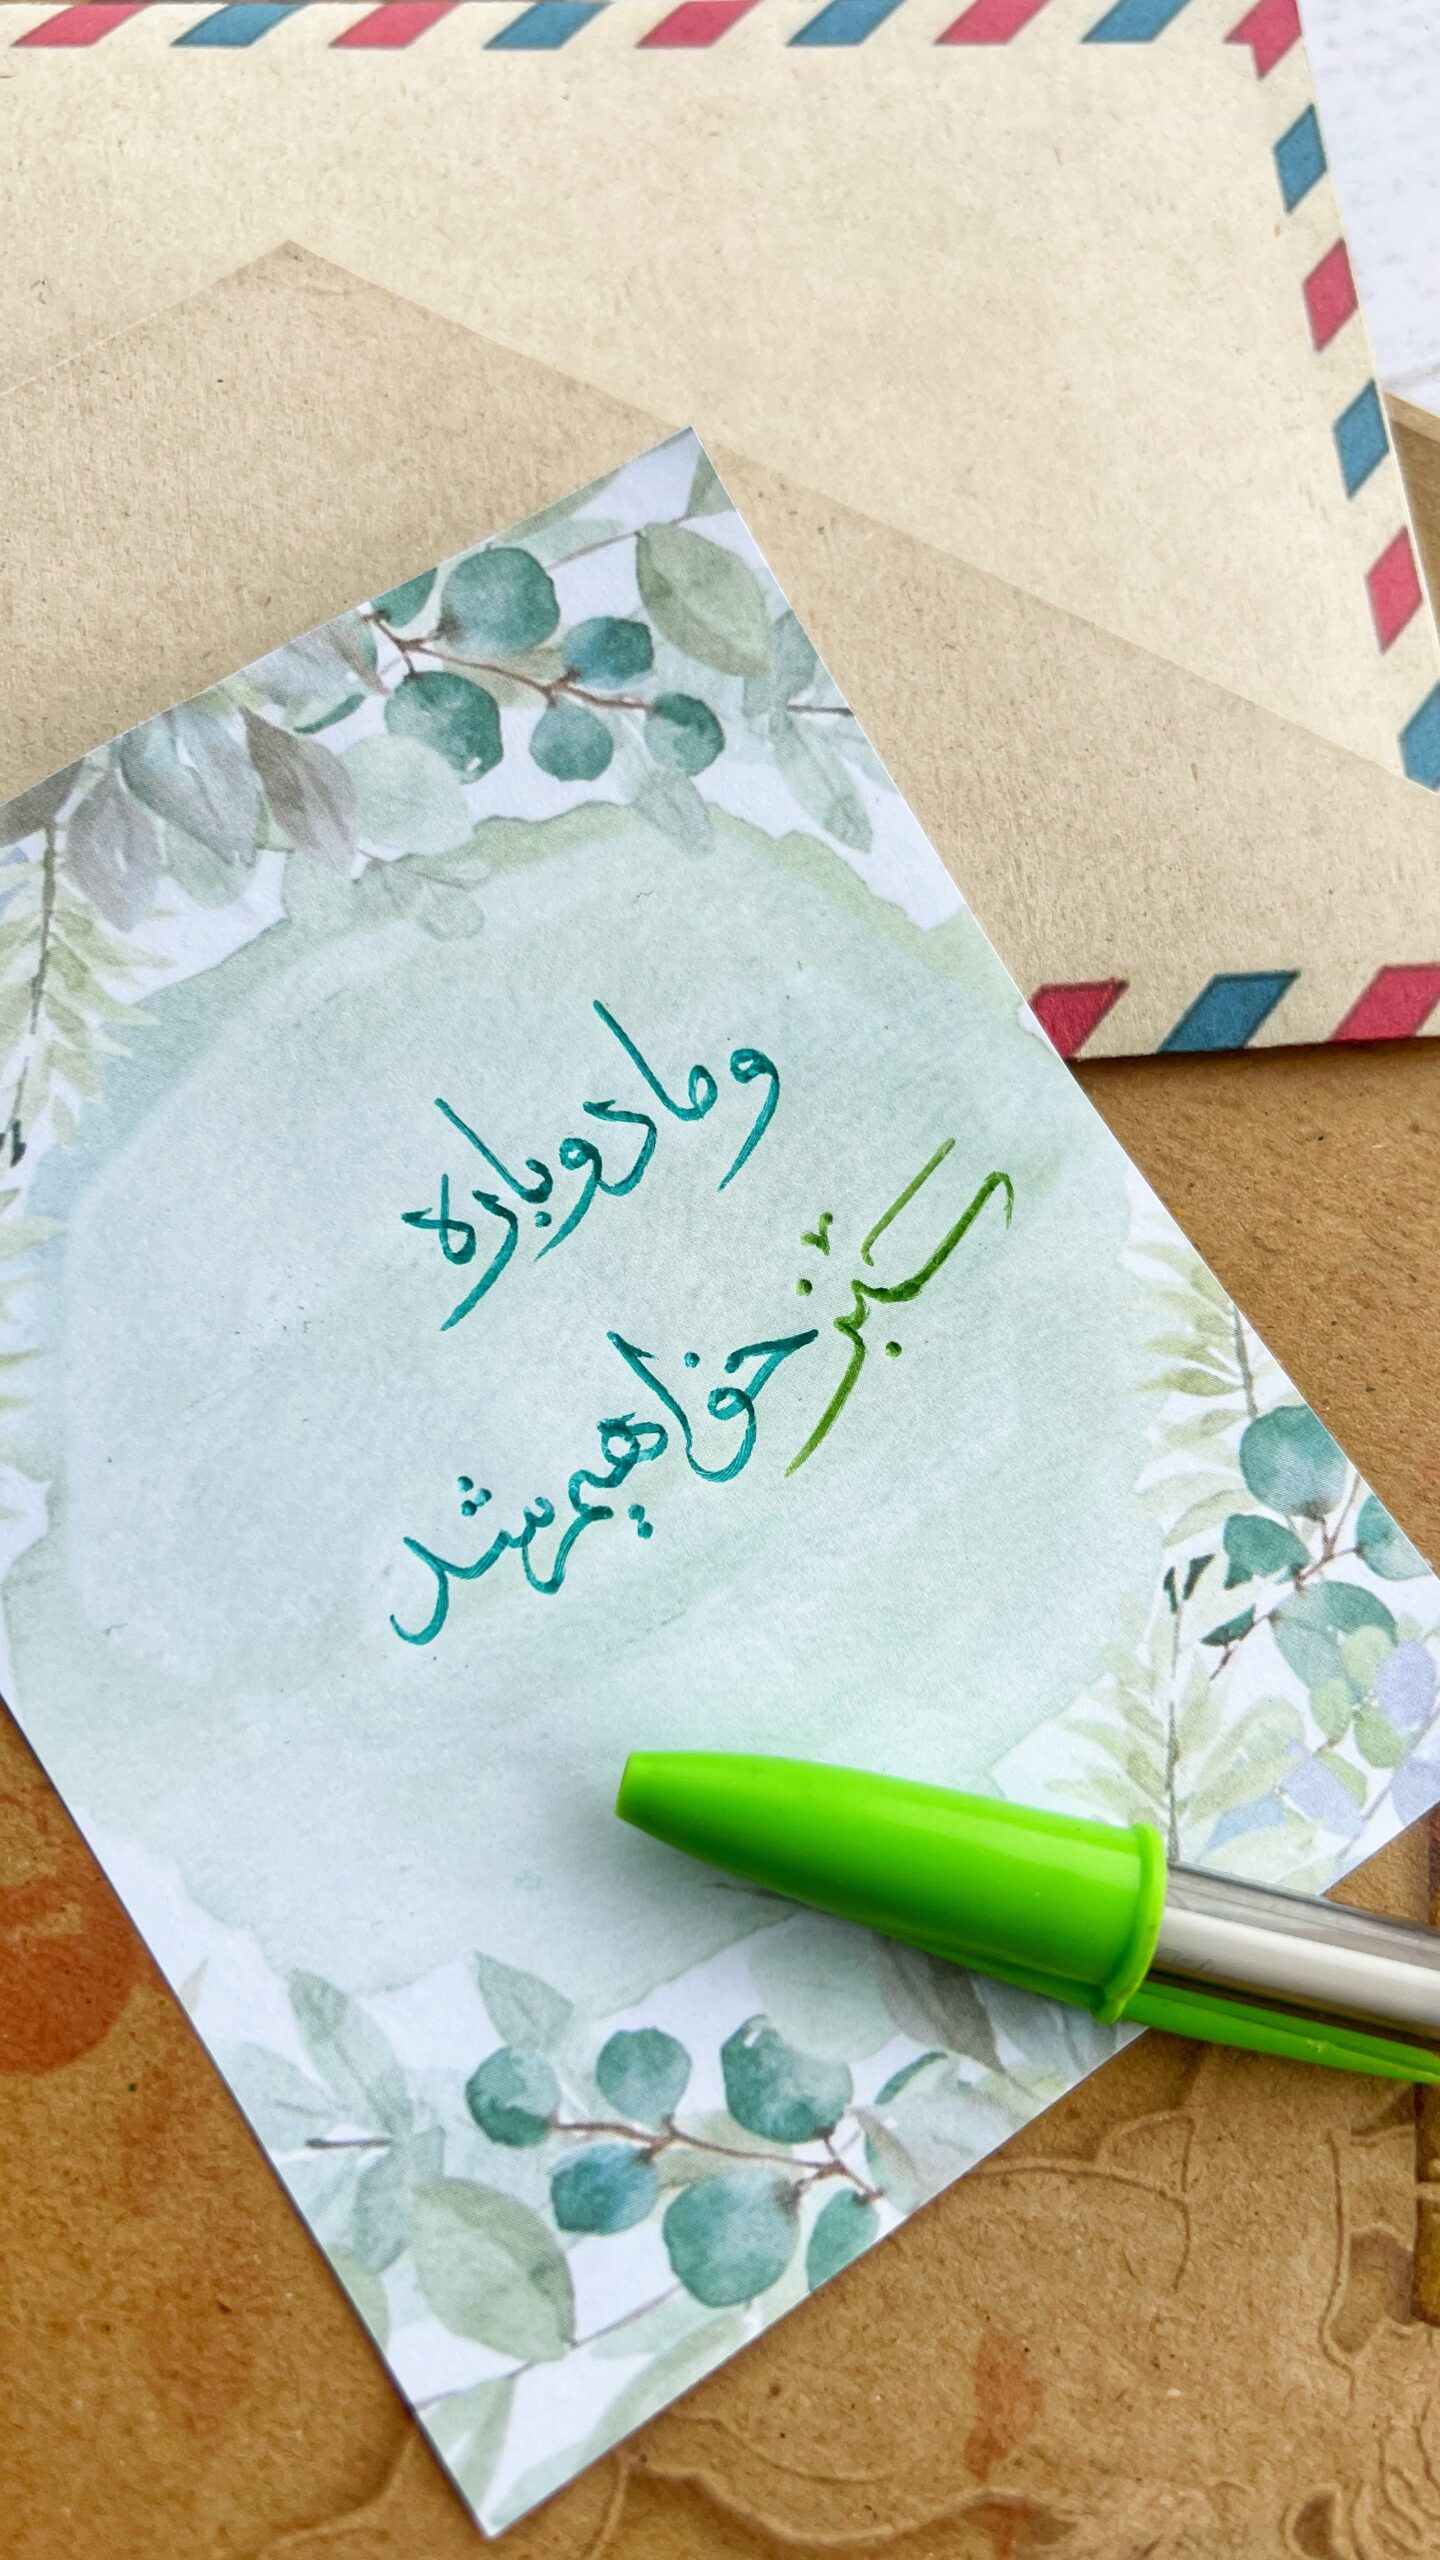 و ما دوباره
سبز خواهیم شد